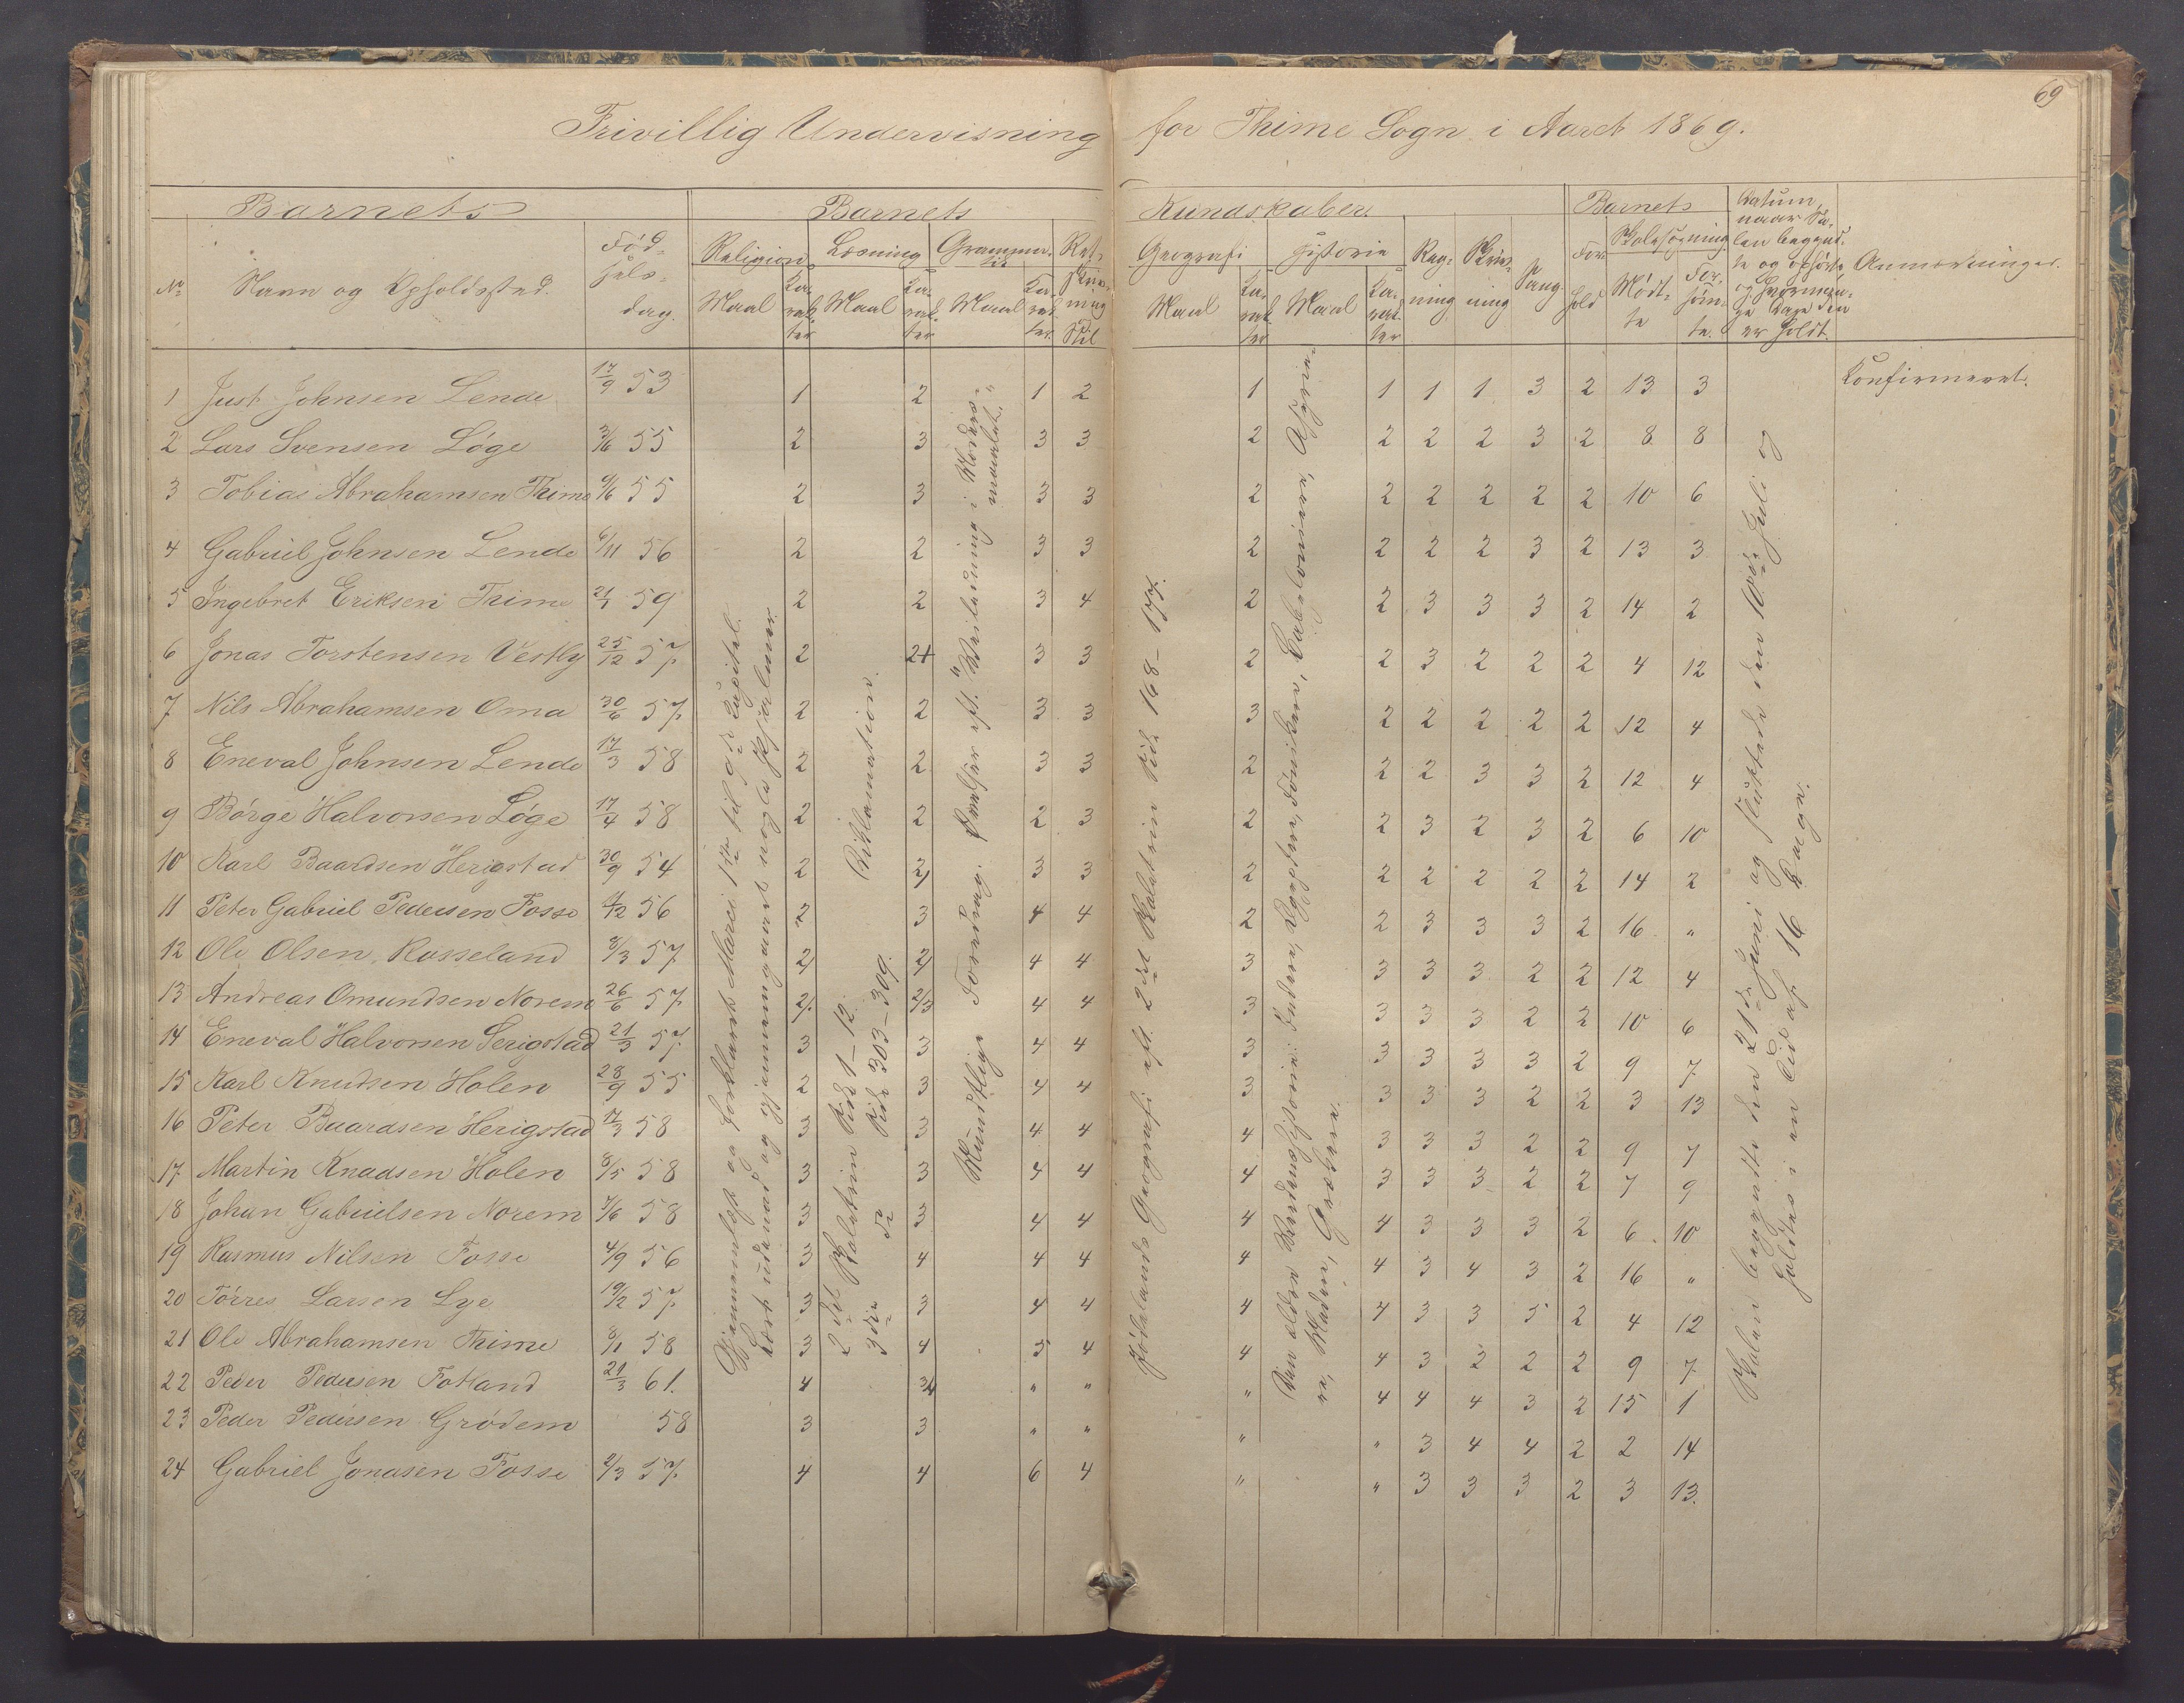 69
Frivillig Undervisning for Thime Sogn i Aaret 1869.
Barnets Barnets Kundskaber. Barnets Datum, naar Skolen begyndte og ophørte og hvormange Dage den er holdt.
No Navn og Opholdssted. Fødselsdag. Religion Læsning Grammatik Retskrivning Stil Geografi Historie Regning Skrivning Sang Forhold Skolesøgning Anmærkninger.
Maal Karakter Maal Karakter Maal Karakter Maal Karakter Maal Karakter Mødte Forsømte.
1 Just Johnsen Lende 17/9 53 1 2 1 2 1 1 1 1 3 2 13 3 Konfirmeret.
2 Lars Svensen Løge 3/6 55 2 3 3 3 2 2 2 2 3 2 8 8
3 Tobias Abrahamsen Thime 9/6 55 2 3 3 3 2 2 2 2 2 2 10 6
4 Gabriel Johnsen Lende 6/11 56 2 2 3 3 2 2 2 2 3 2 13 3
5 Ingebret Eriksen Thime 21/1 59 2 2 3 4 2 2 3 3 3 2 14 2
6 Jonas Torstensen Vestly 25/12 57 2 2+ 3 3 2 2 3 2 2 2 4 12
7 Nils Abrahamsen Oma 30/6 57 2 2 3 3 3 2 2 2 2 2 12 4
8 Eneval Johnsen Lende 17/3 58 2 2 3 3 2 2 2 3 3 2 12 4
9 Børge Halvorsen Løge 17/4 58 2 2 2 3 2 2 3 2 3 2 6 10
10 Karl Baardsen Herigstad 30/9 54 2 2/ 3 3 2 2 2 2 2 2 14 2
11 Peter Gabriel Pedersen Fosse 4/12 56 2 3 4 4 2 2 3 3 3 2 16 "
12 Ole Olsen Rosseland 8/3 57 2/ 2/ 4 4 3 3 3 3 2 2 12 4
13 Andreas Omundsen Norem 26/6 57 2/. 2/3 4 4 3 3 3 3 2 2 10 6
14 Eneval Halvorsen Serigstad 21/3 57 3 3 4 4 3 3 3 3 3 2 9 7
15 Karl Knudsen Holen 28/9 55 2 3 4 4 3 3 3 3 2 2 3 13
16 Peter Baardsen Herigstad 17/3 58 3 3 4 4 4 3 3 3 2 2 9 7
17 Martin Knudsen Holen 8/5 58 3 3 4 4 4 3 3 3 2 2 7 9
18 Johan Gabrielsen Norem 7/6 58 3 3 4 4 4 4 3 3 3 2 6 10
19 Rasmus Nilsen Fosse 4/9 56 3 4 4 4 4 4 3 4 3 2 16 "
20 Tørres Larsen Lye 19/12 57 3 3 4 4 4 4 3 3 5 2 4 12
21 Ole Abrahamsen Thime 8/11 58 3 4 5 4 4 4 3 2 2 2 9 7
22 Peder Pedersen Fotland 21/3 61. 4 3/4 " " " 4 4 4 3 2 15 1
23 Peder Pedersen Grødem 58 3 3 " " " " 3 4 4 2 2 14
24 Gabriel Jonasen Fosse 2/3 57 4 4 6 4 " " 3 3 3 2 3 13.
Gjennemlæst og forklaret Marci 1ste til 9de Kapitel.
Lært udenad og gjennemgaaet nogle Skjærlmer.
2det Skoletrin Side 1–12.
3die do Side 303–309. Deklamation.
Mundtlige Foredrag. Øvelser eft. "Veiledning i Modersmaalet."
Jødelands Geografi eft. 2det Skoletrin Side 168–174.
Den ældre Verdenshistorie: Inderne, Ægypterne, Fønikerne, Babylonierne, Assyrierne, Mederne, Grækerne.
Skolen begyndte den 21de Juni og sluttede den 10de Juli og holdtes i en Tid af 16 Dage.